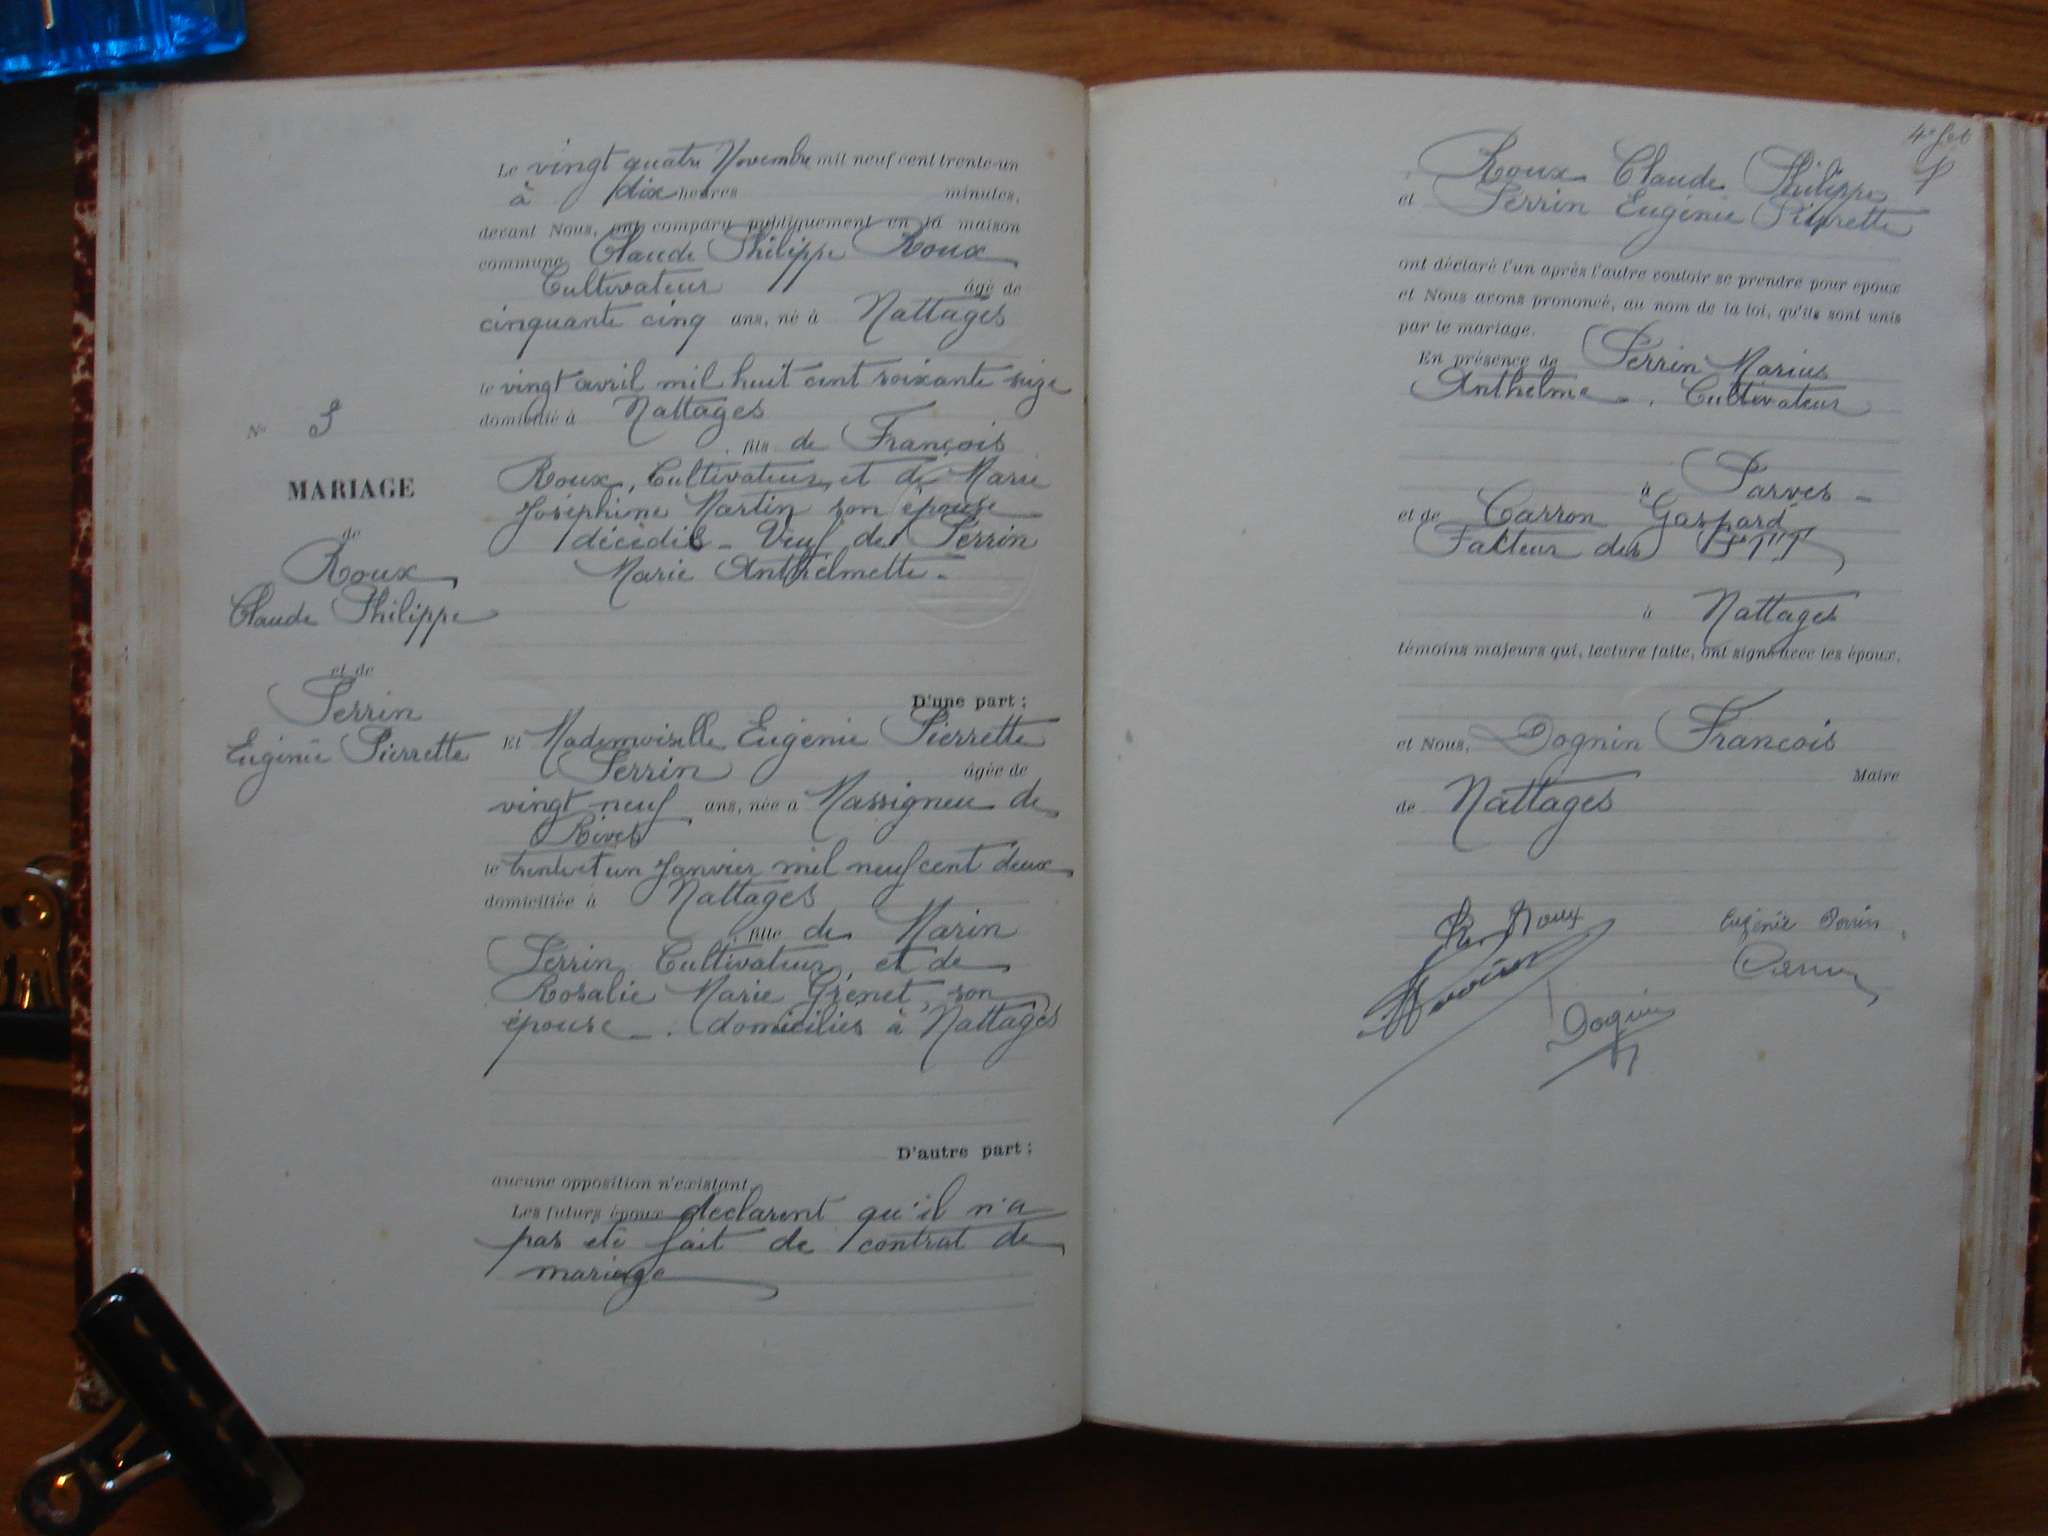 Le vingt quatre Novembre mil neuf cent trente-un
à dix heures minutes,
devant Nous, ont comparu publiquement en la maison
commune Claude Philippe Roux
Cultivateur âgé de
cinquante cinq ans, né à Nattages
le vingt avril mil huit cent soixante seize
domicilié à Nattages
fils de François
Roux, Cultivateur, et de Marie
Joséphine Martin son épouse
décédés - Veuf de Perrin
Marie Anthelmette -
No
MARIAGE
de
Roux
Claude Philippe
et de
Perrin
Eugénie Pierrette
D'une part ;
Et Mademoiselle Eugénie Pierrette
Perrin âgée de
vingt neuf ans, née à Massigneu de
Rives
le trente et un Janvier mil neuf cent deux
domiciliée à Nattages
fille de Marin
Perrin Cultivateur, et de
Rosalie Marie Grenet, son
épouse - . domiciliés à Nattages
D'autre part ;
aucune opposition n'existant
Les futurs époux declarent qu'il n'a
pas été fait de contrat de
mariage
4e
Roux Claude Philippe
et Perrin Eugénie Pierrette
ont déclaré l'un après l'autre vouloir se prendre pour époux
et Nous avons prononcé, au nom de la loi, qu'ils sont unis
par le mariage.
En présence de Perrin Marius
Anthelme . Cultivateur
à Parves -
et de Carron Gaspard
Facteur des PTT
à Nattages
témoins majeurs qui, lecture faite, ont signé avec les époux,
et Nous, Dognin François
Maire
de Nattages
Roux Eugénie Perrin
Dognin